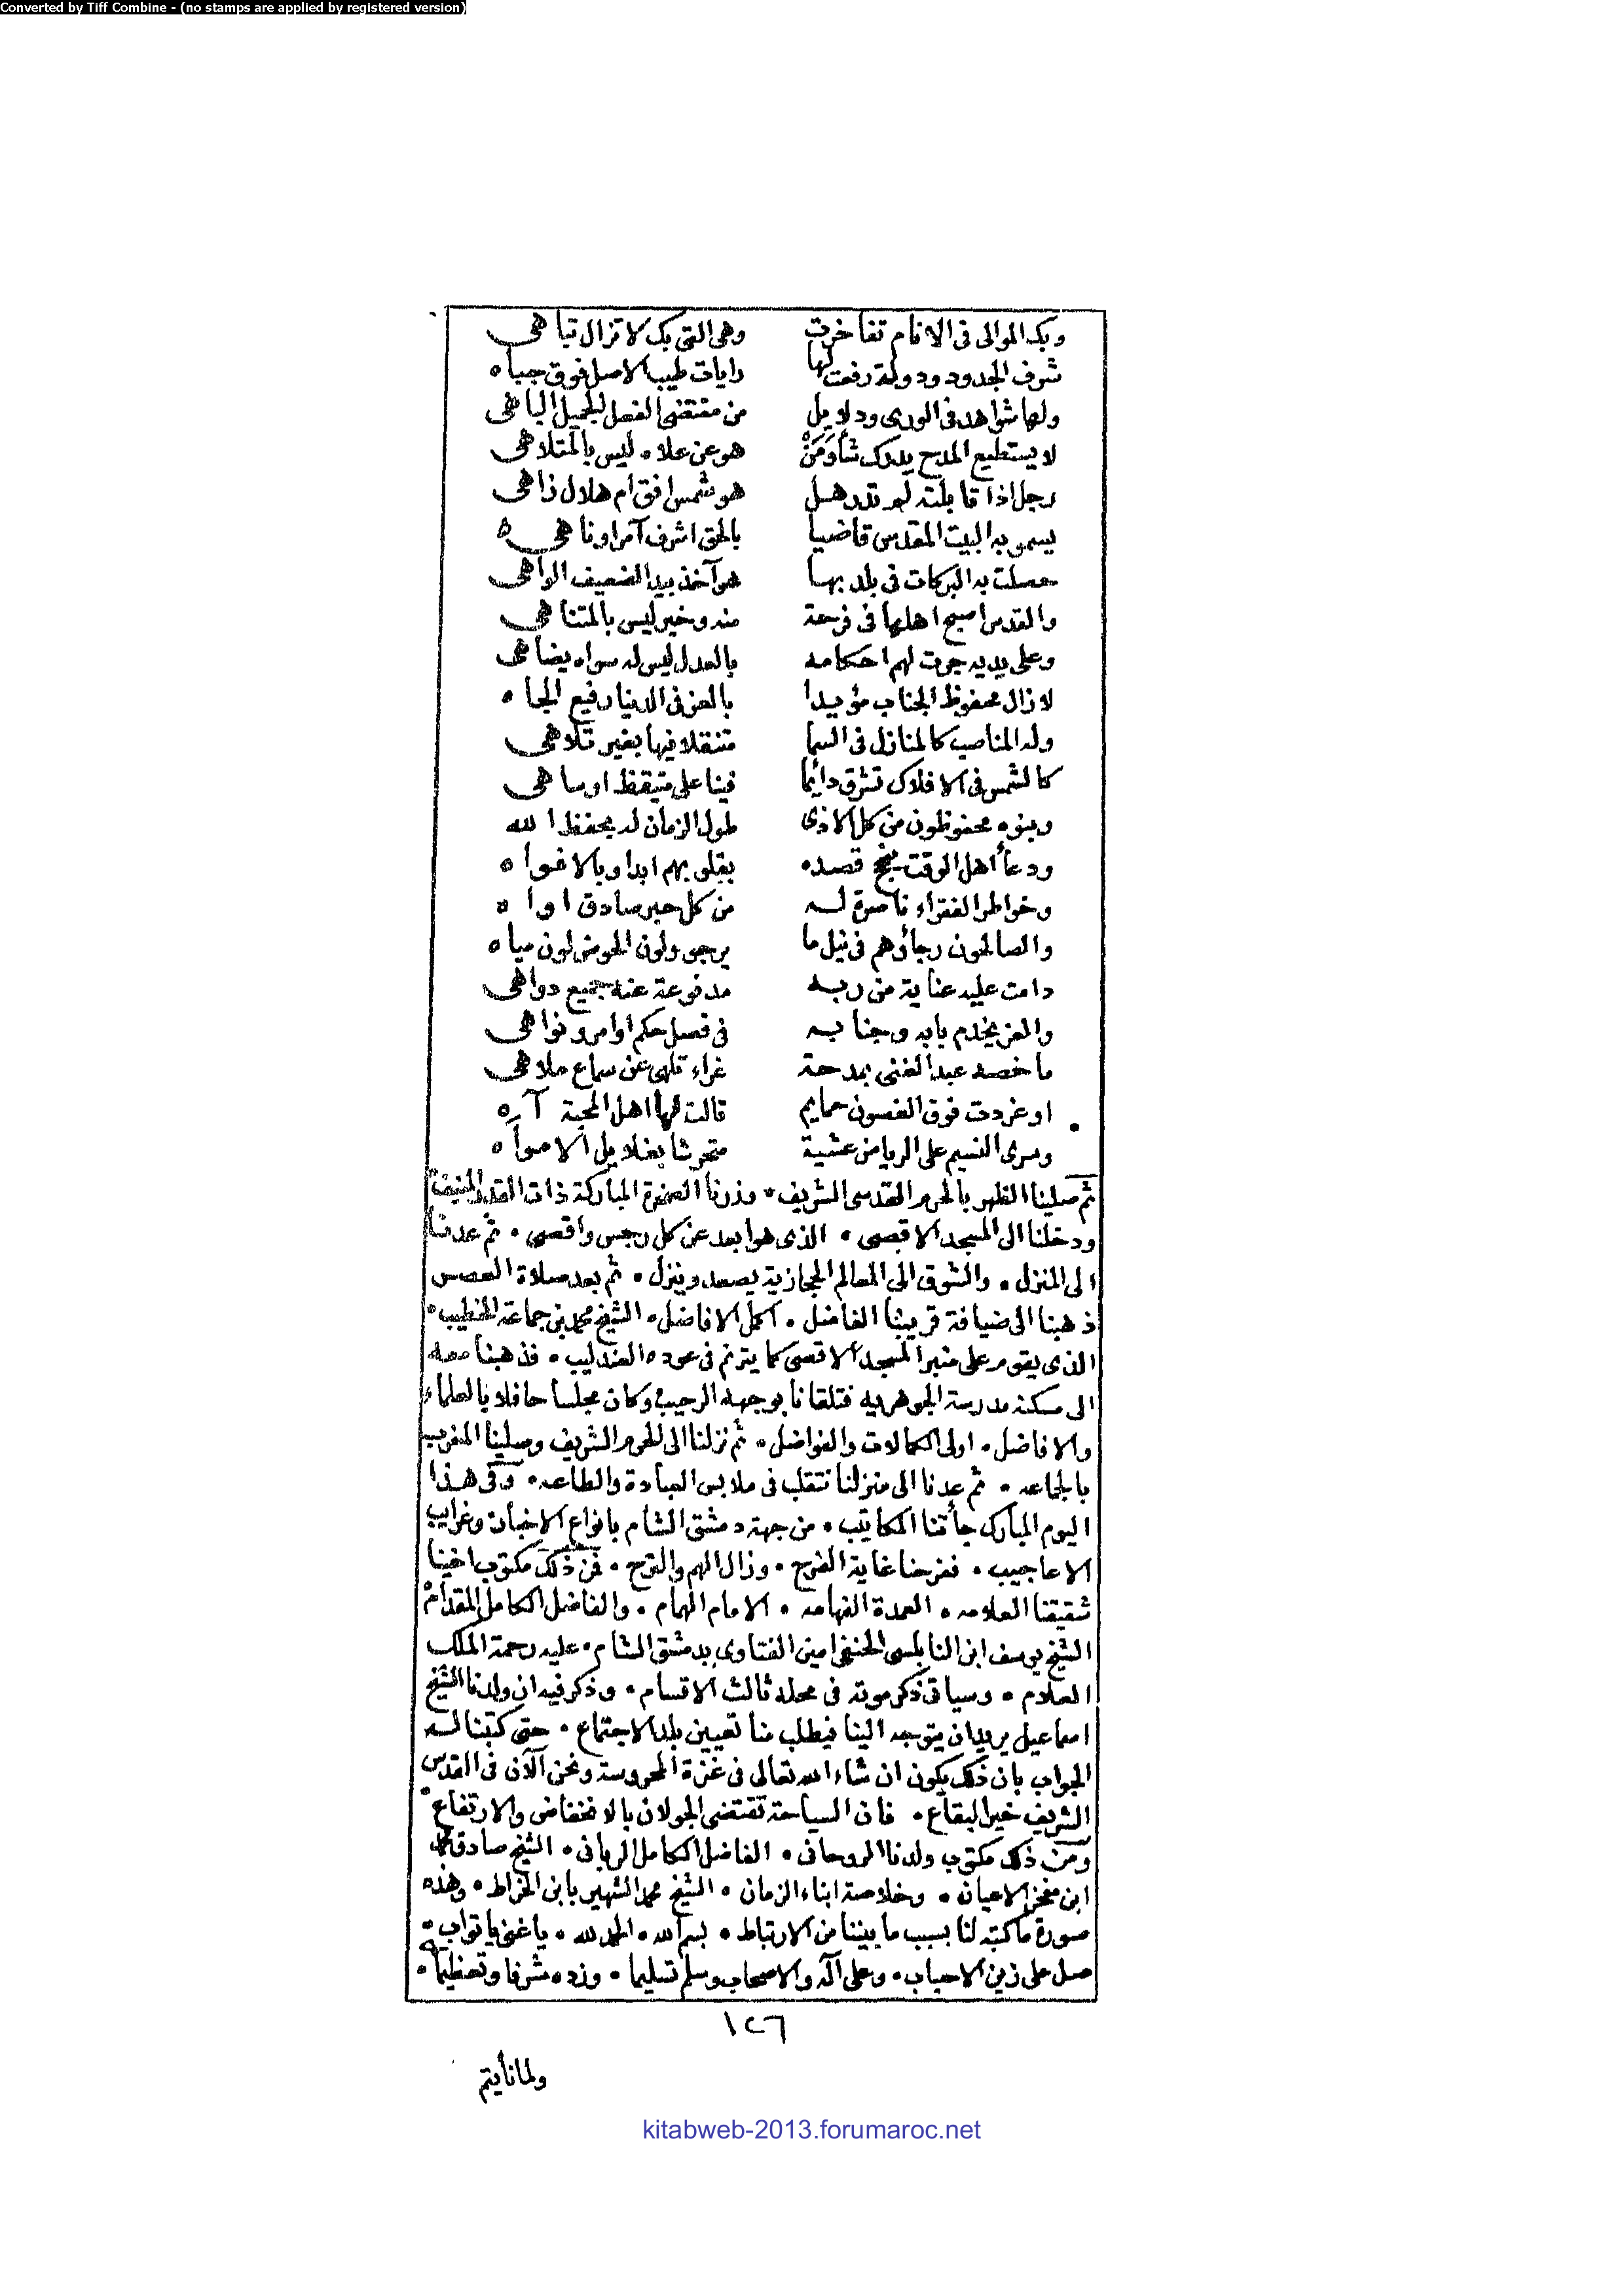 Converted by Tiff Combine - (no stamps are applied by registered version)
وبك الموالى فى الانام تفاخرت وهى التى بك لا تزال تباهى
شرف الجدود ودولة رفعت لها رايات طيب الاصل فوق جباه
ولها شواهد فى الورى ودلايل من مقتضى الفعل الجميل الباهى
لا يستطيع المدح يدرك شأوَمَنْ هو عن علاه ليس بالمتلاهى
رجل اذا قابلته لم تدر هل هو شمس افق ام هلال زاهى
يسمو به البيت المقدس قاضيا بالحق اشرف آمر اوناهى ه
حصلت به البركات فى بلد بها هو آخذ بيد الضعيف الواهى
والقدس اصبح اهلها فى فرحة منه وخير ليس بالمتناهى
وعلى يديه جرت لهم احكامه بالعدل ليس له سواه يضاهى
لا زال محفوظ الجناب مؤيدا بالعز فى الدنيا رفيع الجاه
وله المناصب كالمنازل فى السما متنقلا فيها بغير تلاهى
كالشمس فى الافلاك تشرق دائما فينا على متيقظ اوساهى
وبنوه محفوظون من كل الاذى طول الزمان له يحفظ الله
ودعأ اهل الوقت ينجح قصده بقلوبهم ابدا وبالافواه
وخواطر الفقراء ناصرة له من كل حبر صادق اواه
والصالحون رجاؤهم فى نيل ما يرجو ولون الحوض لون مياه
دامت عليه عناية من ربه مدفوعة عنه جميع دواهى
والعز يخدم بابه وجنابه فى فصل حكم اوامر ونواهى
ما خصه عبد الغنى بمدحة غراء تلهى عن سماع ملاهى
او غردت فوق الغصون حمايم قالت لها اهل المحبة آه
وسرى النسيم على الرياض عشية متحرشا بغلايل الامواه
ثم صلينا الظهر بالحرم القدسى الشريف • وزرنا الصخرة المباركة ذات القدر المنيف
ودخلنا الى المسجد الاقصى • الذى هو ابعد عن كل رجس واقصى • ثم عدنا
الى المنزل • والشوق الى المعالم الحجازية يصعد وينزل • ثم بعد صلاة العصر
ذهبنا الى ضيافة قريبنا الفاضل • اكمل الافاضل • الشيخ محمد بن جماعة الخطيب •
الذى يقوم على منبر المسجد الاقصى كما يترنم فى عوده العندليب • فذهبنا معه
الى مسكنه مدرسة الجوهريه فتلقانا بوجهه الرحيب وكان مجلسا حافلا بالعلماء
والافاضل • اولى الكمالات والفواضل • ثم نزلنا الى الحرم الشريف وصلينا المغرب
بالجماعه • ثم عدنا الى منزلنا نتقلب فى ملابس العبادة والطاعه • وفى هذا
اليوم المبارك جأتنا المكاتيب • من جهة دمشق الشام بانواع الاخبار وغرايب
الاعاجيب • ففرحنا غاية الفرح • وزال الهم والترح • فمن ذلك مكتوب اخينا
شقيقنا العلامه • العمدة الفهامه • الامام الهمام • والفاضل الكامل المقدام
الشيخ يوسف ابن النابلسى الحنفى امين الفتاوى بدمشق الشام • عليه رحمة الملك
العلام • وسياتى ذكر موته فى محله ثالث الاقسام • وذكر فيه ان ولدنا الشيخ
اسماعيل يريد ان يتوجه الينا فيطلب منا تعيين بلد الاجتماع • حتى كتبنا له
الجواب بان ذلك يكون ان شاء الله تعالى فى غزة المحروسة ونحن الآن فى القدس
الشريف خير البقاع • فان السياحة تقتضى الجولان بالانخفاض والارتفاع
ومن ذلك مكتوب ولدنا الروحانى • الفاضل الكامل الربانى • الشيخ صادق محمد
ابن مفخر الاعيان • وخلاصة ابناء الزمان • الشيخ محمد الشهير بابن الخراط • وهذه
صورة ما كتبه لنا بسبب ما بيننا من الارتباط • بسم الله • الحمد لله • يا غنى يا تواب •
صل على زين الاحباب • وعلى آله والاصحاب وسلم تسليما • وزده شرفا وتعظيما •
١٢٦
ولمانأيتم
kitabweb-2013.forumaroc.net